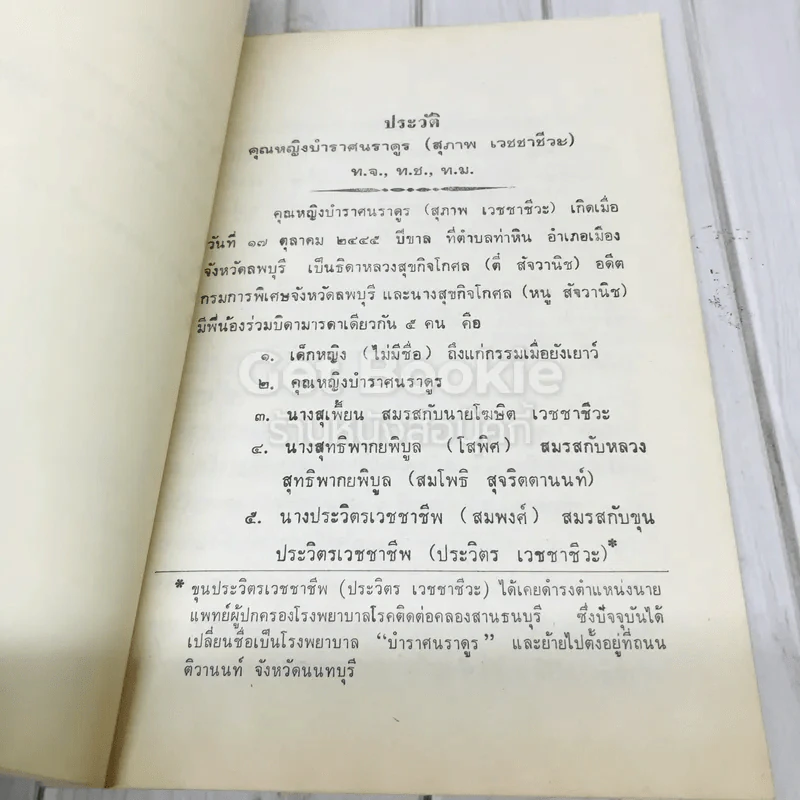 ประวัติ
คุณหญิงบำราศนราดูร (สุภาพ เวชชาชีวะ)
ท.จ., ท.ช., ท.ม.
คุณหญิงบำราศนราดูร (สุภาพ เวชชาชีวะ) เกิดเมื่อ
วันที่ ๑๗ ตุลาคม ๒๔๔๕ ปีขาล ที่ตำบลท่าหิน อำเภอเมือง
จังหวัดลพบุรี เป็นธิดาหลวงสุขกิจโกศล (ตี่ สัจวานิช) อดีต
กรมการพิเศษจังหวัดลพบุรี และนางสุขกิจโกศล (หนู สัจวานิช)
มีพี่น้องร่วมบิดามารดาเดียวกัน ๕ คน คือ
๑. เด็กหญิง (ไม่มีชื่อ) ถึงแก่กรรมเมื่อยังเยาว์
๒. คุณหญิงบำราศนราดูร
๓. นางสุเพี้ยน สมรสกับนายโฆษิต เวชชาชีวะ
๔. นางสุทธิพากยพิบูล (โสพิศ) สมรสกับหลวง
สุทธิพากยพิบูล (สมโพธิ สุจริตตานนท์)
๕. นางประวิตรเวชชาชีพ (สมพงศ์) สมรสกับขุน
ประวิตรเวชชาชีพ (ประวิตร เวชชาชีวะ)*
* ขุนประวิตรเวชชาชีพ (ประวิตร เวชชาชีวะ) ได้เคยดำรงตำแหน่งนาย
แพทย์ผู้ปกครองโรงพยาบาลโรคติดต่อคลองสานธนบุรี ซึ่งปัจจุบันได้
เปลี่ยนชื่อเป็นโรงพยาบาล “บำราศนราดูร” และย้ายไปตั้งอยู่ที่ถนน
ติวานนท์ จังหวัดนนทบุรี
Get Bookie
ร้านหนังสือเก็ทบุ๊คกี้